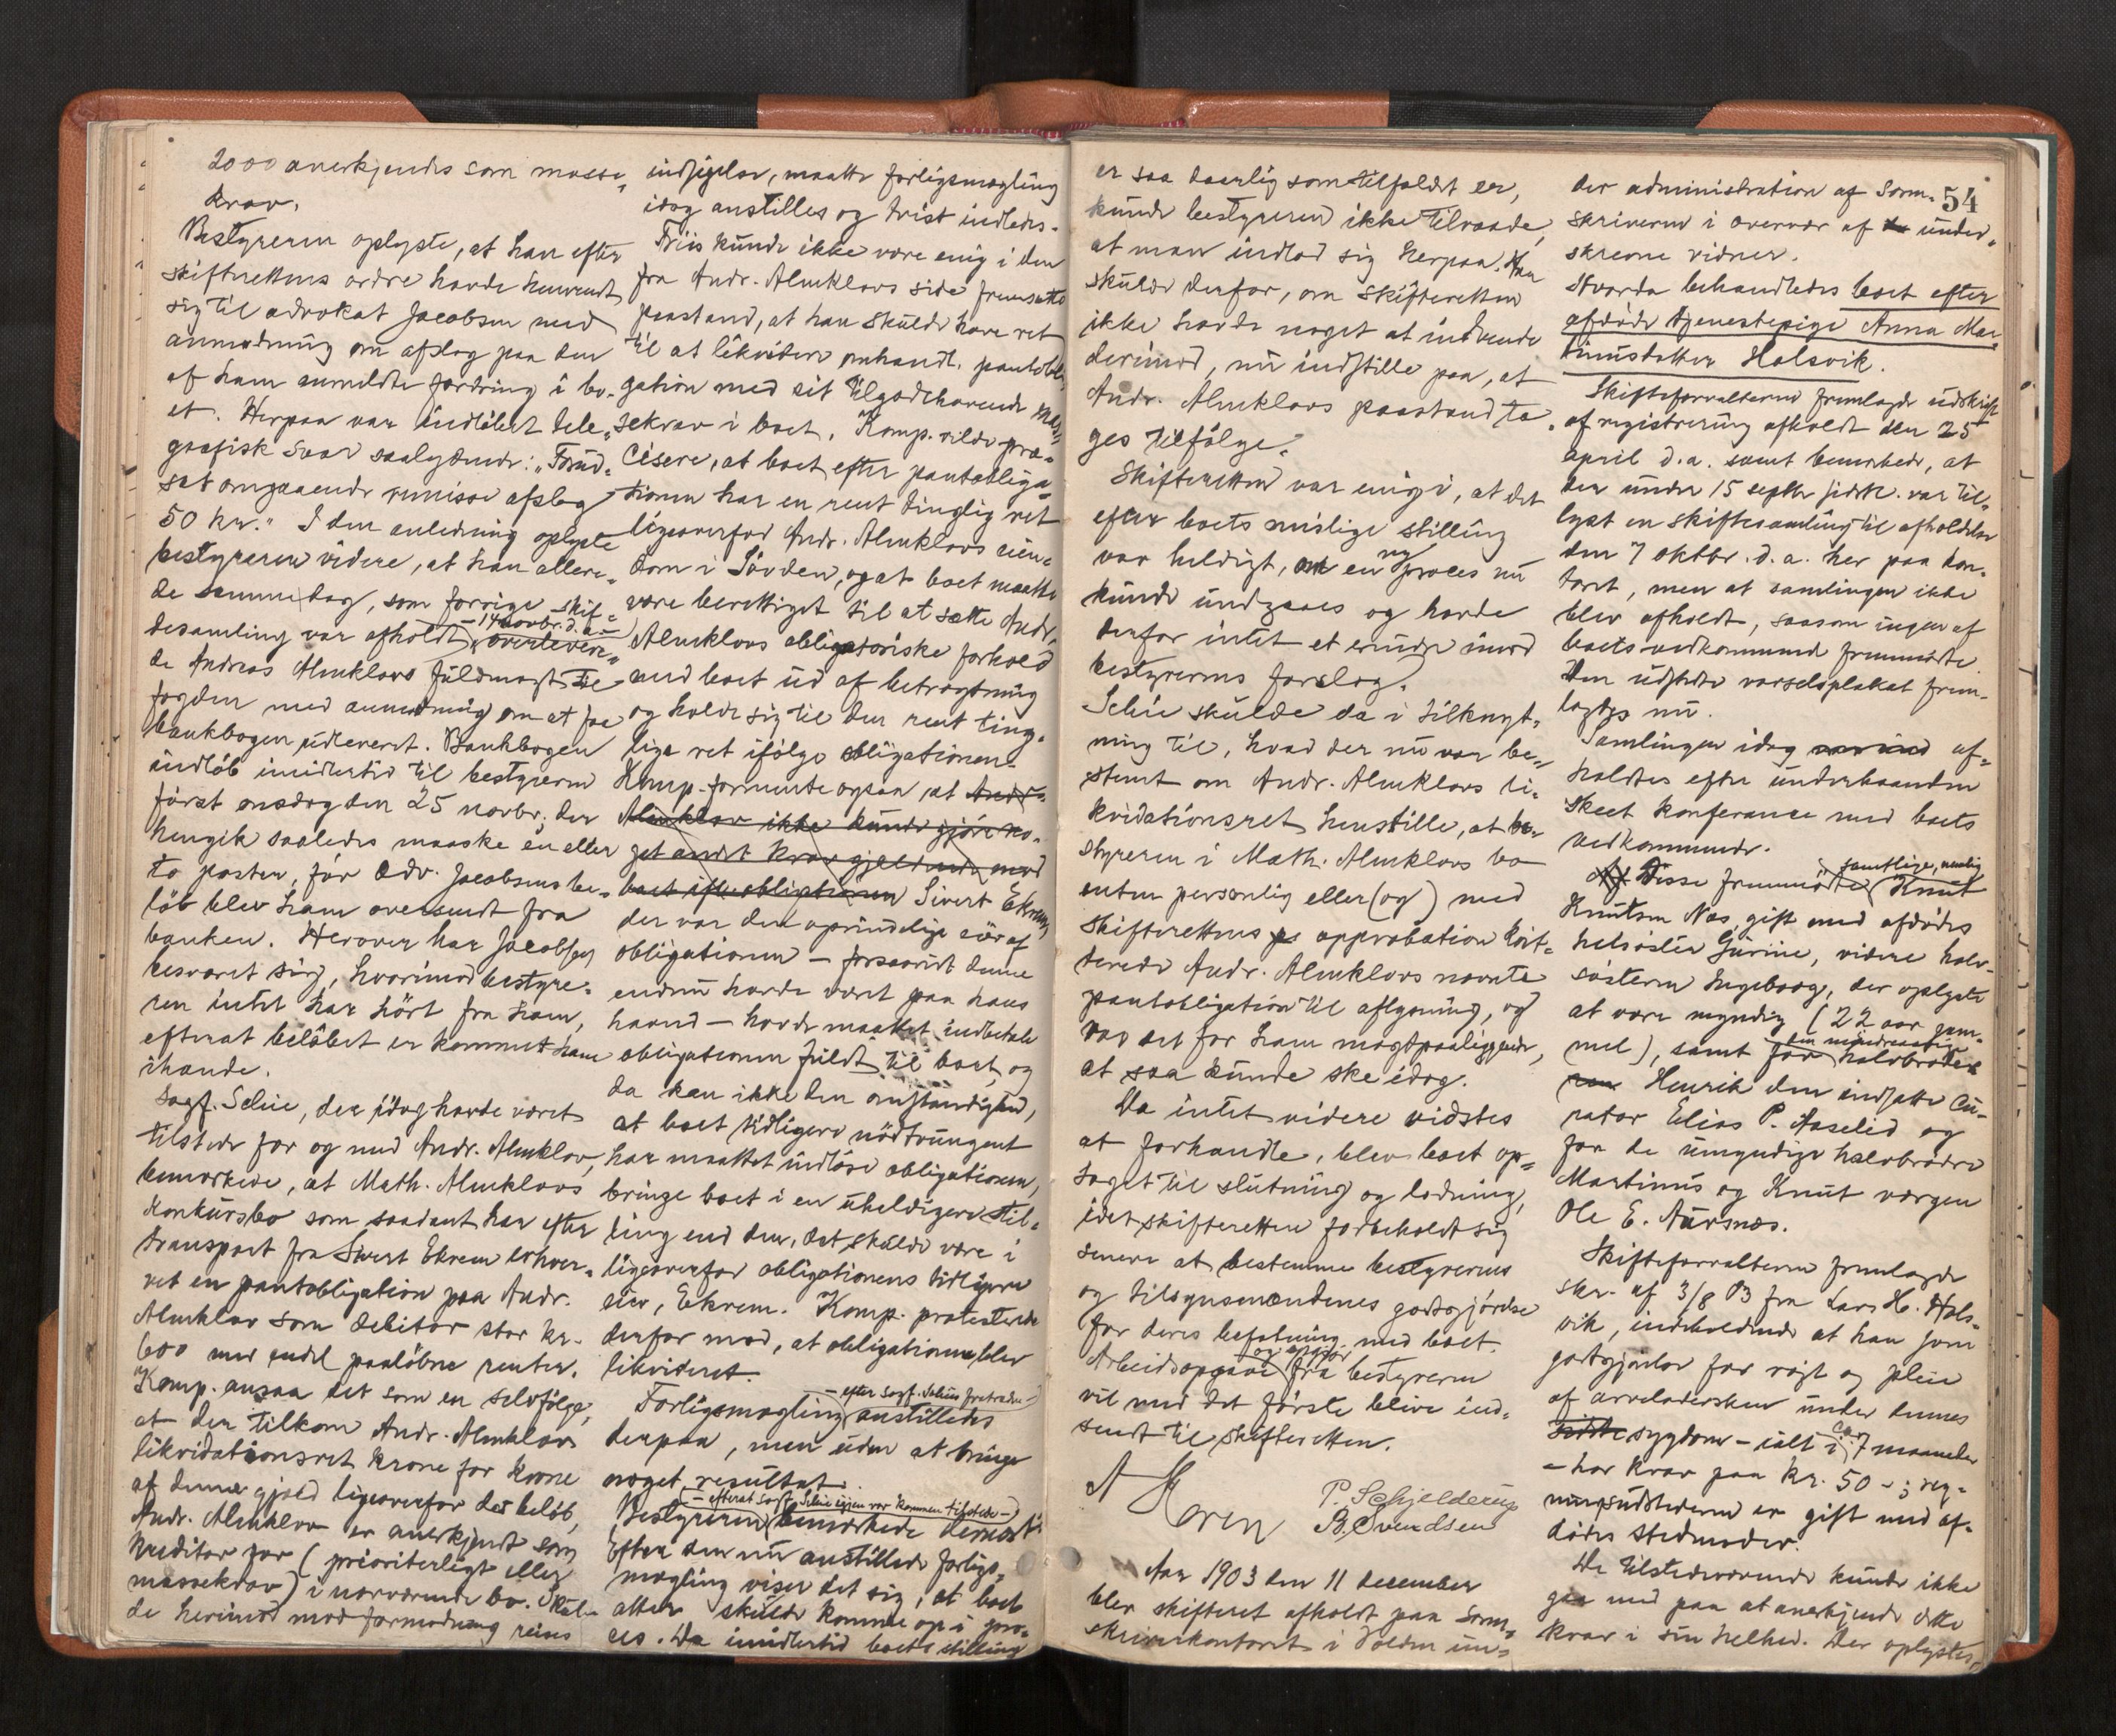 2000 anerkjendes som masse,
krav.
Bestyreren oplyste, at han efter
skifterettens ordre havde henvendt
sig til advokat Jacobsen med
anmodning om afslag paa den
af ham anmeldte fordring i bo-
et. Herpaa var indløbet tele-
grafisk svar saalydende: "Forud-
sat omgaaende remisse afslag
50 kr." I den anledning oplyste
bestyreren videre, at han allere-
de samme dag, som forrige skif-
tesamling var afholdt – 14 novbr. d. a. – overlevere-
de Andreas Almklovs fuldmagt til
fogden med anmodning om at faa
bankbogen udleveret. Bankbogen
indløb imidlertid til bestyreren
først onsdag den 25 novbr; der
hengik saaledes maaske en eller
to poster, før adv. Jacobsens be-
løb blev ham oversendt fra
banken. Herover har Jacobsen
besværet sig, hvorimod bestyre-
ren intet har hørt fra ham,
efterat beløbet er kommet ham
ihænde.
Sagf. Schie, der idag havde været
tilstede for og med Andr. Almklov,
bemærkede, at Math. Almklovs
konkursbo som saadant har efter
transport fra Sivert Ekrem erhver-
vet en pantobligation paa Andr.
Almklov som debitor stor kr.
600 med endel paaløbne renter.
Komp. ansaa det som en selvfølge,
at der tilkom Andr. Almklov
likvidationsret krone for krone
af denne gjæld ligeoverfor det beløb,
Andr. Almklov er anerkjendt som
kreditor for (prioriterligt eller
massekrav) i nærværende bo. Skul-
de herimod mod formodning reises
indsigelse, maatte forligsmægling
idag anstilles og tvist indledes.
Friis kunde ikke være enig i den
fra Andr. Almklovs side fremsatte
paastand, at han skulde have ret
til at likvidere omhandl. pantobli-
gation med sit tilgodehavende mas-
sekrav i boet. Komp. vilde præ-
cisere, at boet efter pantobliga-
tionen har en rent tinglig ret
ligeoverfor Andr. Almklovs eien-
dom i Søvden, og at boet maatte
være berettiget til at sætte Andr.
Almklovs obligatoriske forhold
med boet ud af betragtning
og holde sig til den rent ting-
lige ret ifølge obligationen.
Komp. formente ogsaa, at Andr.
Almklov ikke kunde gjøre no-
get andet krav gjældende mod
boet ifl. obligationen Sivert Ekrem,
der var den oprindelige eier af
obligationen – forsaavidt denne
endnu havde været paa hans
haand – havde maattet indbetale
obligationen fuldt til boet, og
da kan ikke den omstændighed,
at boet tidligere nødtvungent
har maattet indløse obligationen,
bringe boet i en uheldigere stil-
ling end den, det skulde være i
ligeoverfor obligationens tidligere
eier, Ekrem. Komp. protesterede
derfor mod, at obligationen blev
likvideret.
Forligsmægling – efter sagf. Schies fratræden – anstilledes
derpaa, men uden at bringe
noget resultat.
Bestyreren – efterat sagf. Schie igjen var kommen tilstede – bemærkede dernæst:
Efter den nu anstillede forligs-
mægling viser det sig, at boet
atter skulde komme op i pro-
ces. Da imidlertid boets stilling
er saa daarlig som tilfældet er,
kunde bestyreren ikke tilraade,
at man indlod sig herpaa. Han
skulde derfor, om skifteretten
ikke havde noget at indvende
derimod, nu indstille paa, at
Andr. Almklovs paastand ta-
ges tilfølge.
Skifteretten var enig i, at det
efter boets mislige stilling
var heldigt, om en ny proces nu
kunde undgaaes og havde
derfor intet at erindre imod
bestyrerens forslag.
Schie skulde da i tilknyt-
ning til, hvad der nu var be-
stemt om Andr. Almklovs li-
kvidationsret henstille, at be-
styreren i Math. Almklovs bo
enten personlig eller (og) med
skifterettens approbation kvit-
terede Andr. Almklovs nævnte
pantobligation til aflysning, og
var det for ham magtpaaliggende,
at saa kunde ske idag.
Da intet videre vidstes
at forhandle, blev boet op-
taget til slutning og lodning,
idet skifteretten forbeholdt sig
senere at bestemme bestyrerens
og tilsynsmændenes godtgjørelse
for deres befatning med boet.
Arbeidsopgave og opgjør fra bestyreren
vil med det første blive ind-
sendt til skifteretten.
A Koren
P. Schjelderup
B. Svendsen
Aar 1903 den 11 december
blev skifteret afholdt paa soren-
skriverkontoret i Volden un-
54
der administration af soren-
skriveren i overvær af under-
skrevne vidner.
Hvorda behandledes boet efter
afdøde tjenestepige Anna Mar-
tinusdatter Holsvik.
Skifteforvalteren fremlagde udskrift
af registrering afholdt den 25
april d. a. samt bemærkede, at
der under 15 septbr sidstl. var til-
lyst en skiftesamling til afholdelse
den 7 oktbr. d. a. her paa kon-
toret, men at samlingen ikke
blev afholdt, saasom ingen af
boets vedkommende fremmødte.
Den udstedte varselsplakat frem-
lagdes nu.
Samlingen idag af-
holdtes efter underhaanden
skeet konferance med boets
vedkommende.
Af Disse fremmødte samtlige, nemlig Knut
Knutsen Næs gift med afdødes
helsøster Gurine, videre halv-
søsteren Ingeborg, der oplyste
at være myndig (22 aar gam-
mel), samt for den mindreaarige halvbroder
Henrik den indsatte cu-
rator Elias P. Aaselid og
for de umyndige halvbrødre
Martinus og Knut værgen
Ole E. Aursnæs.
Skifteforvalteren fremlagde
skr. af 3/8 03 fra Lars H. Hols-
vik, indeholdende at han som
godtgjørelse for røgt og pleie
af arveladersken under dennes
sidste sygdom – ialt i ca. 7 maaneder
– har krav paa kr. 50 -; reg-
ningsudstederen er gift med af-
dødes stedmoder.
De tilstedeværende kunde ikke
gaa med paa at anerkjende dette
krav i sin helhed. Der oplystes,